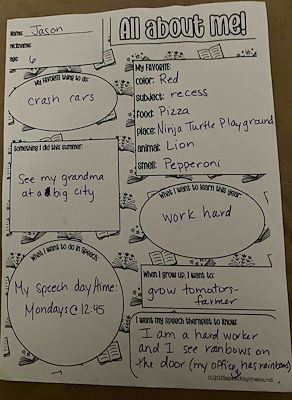 Name: Jason
All about me!
nickname:
age: 6
My favorite thing to do:
crash cars
My Favorite:
color: Red
subject: recess
food: Pizza
place: Ninja Turtle Playground
animal: Lion
smell: Pepperoni
Something I did this summer:
See my grandma
at a big city
What I want to learn this year:
work hard
What I want to do in speech:
My speech day/time:
Mondays @ 12:45
When I grow up, I want to:
grow tomators-
farmer
I want my speech therapist to know:
I am a hard worker
and I see rainbows on
the door (my office has rainbows)
(c)2025speechbythesound